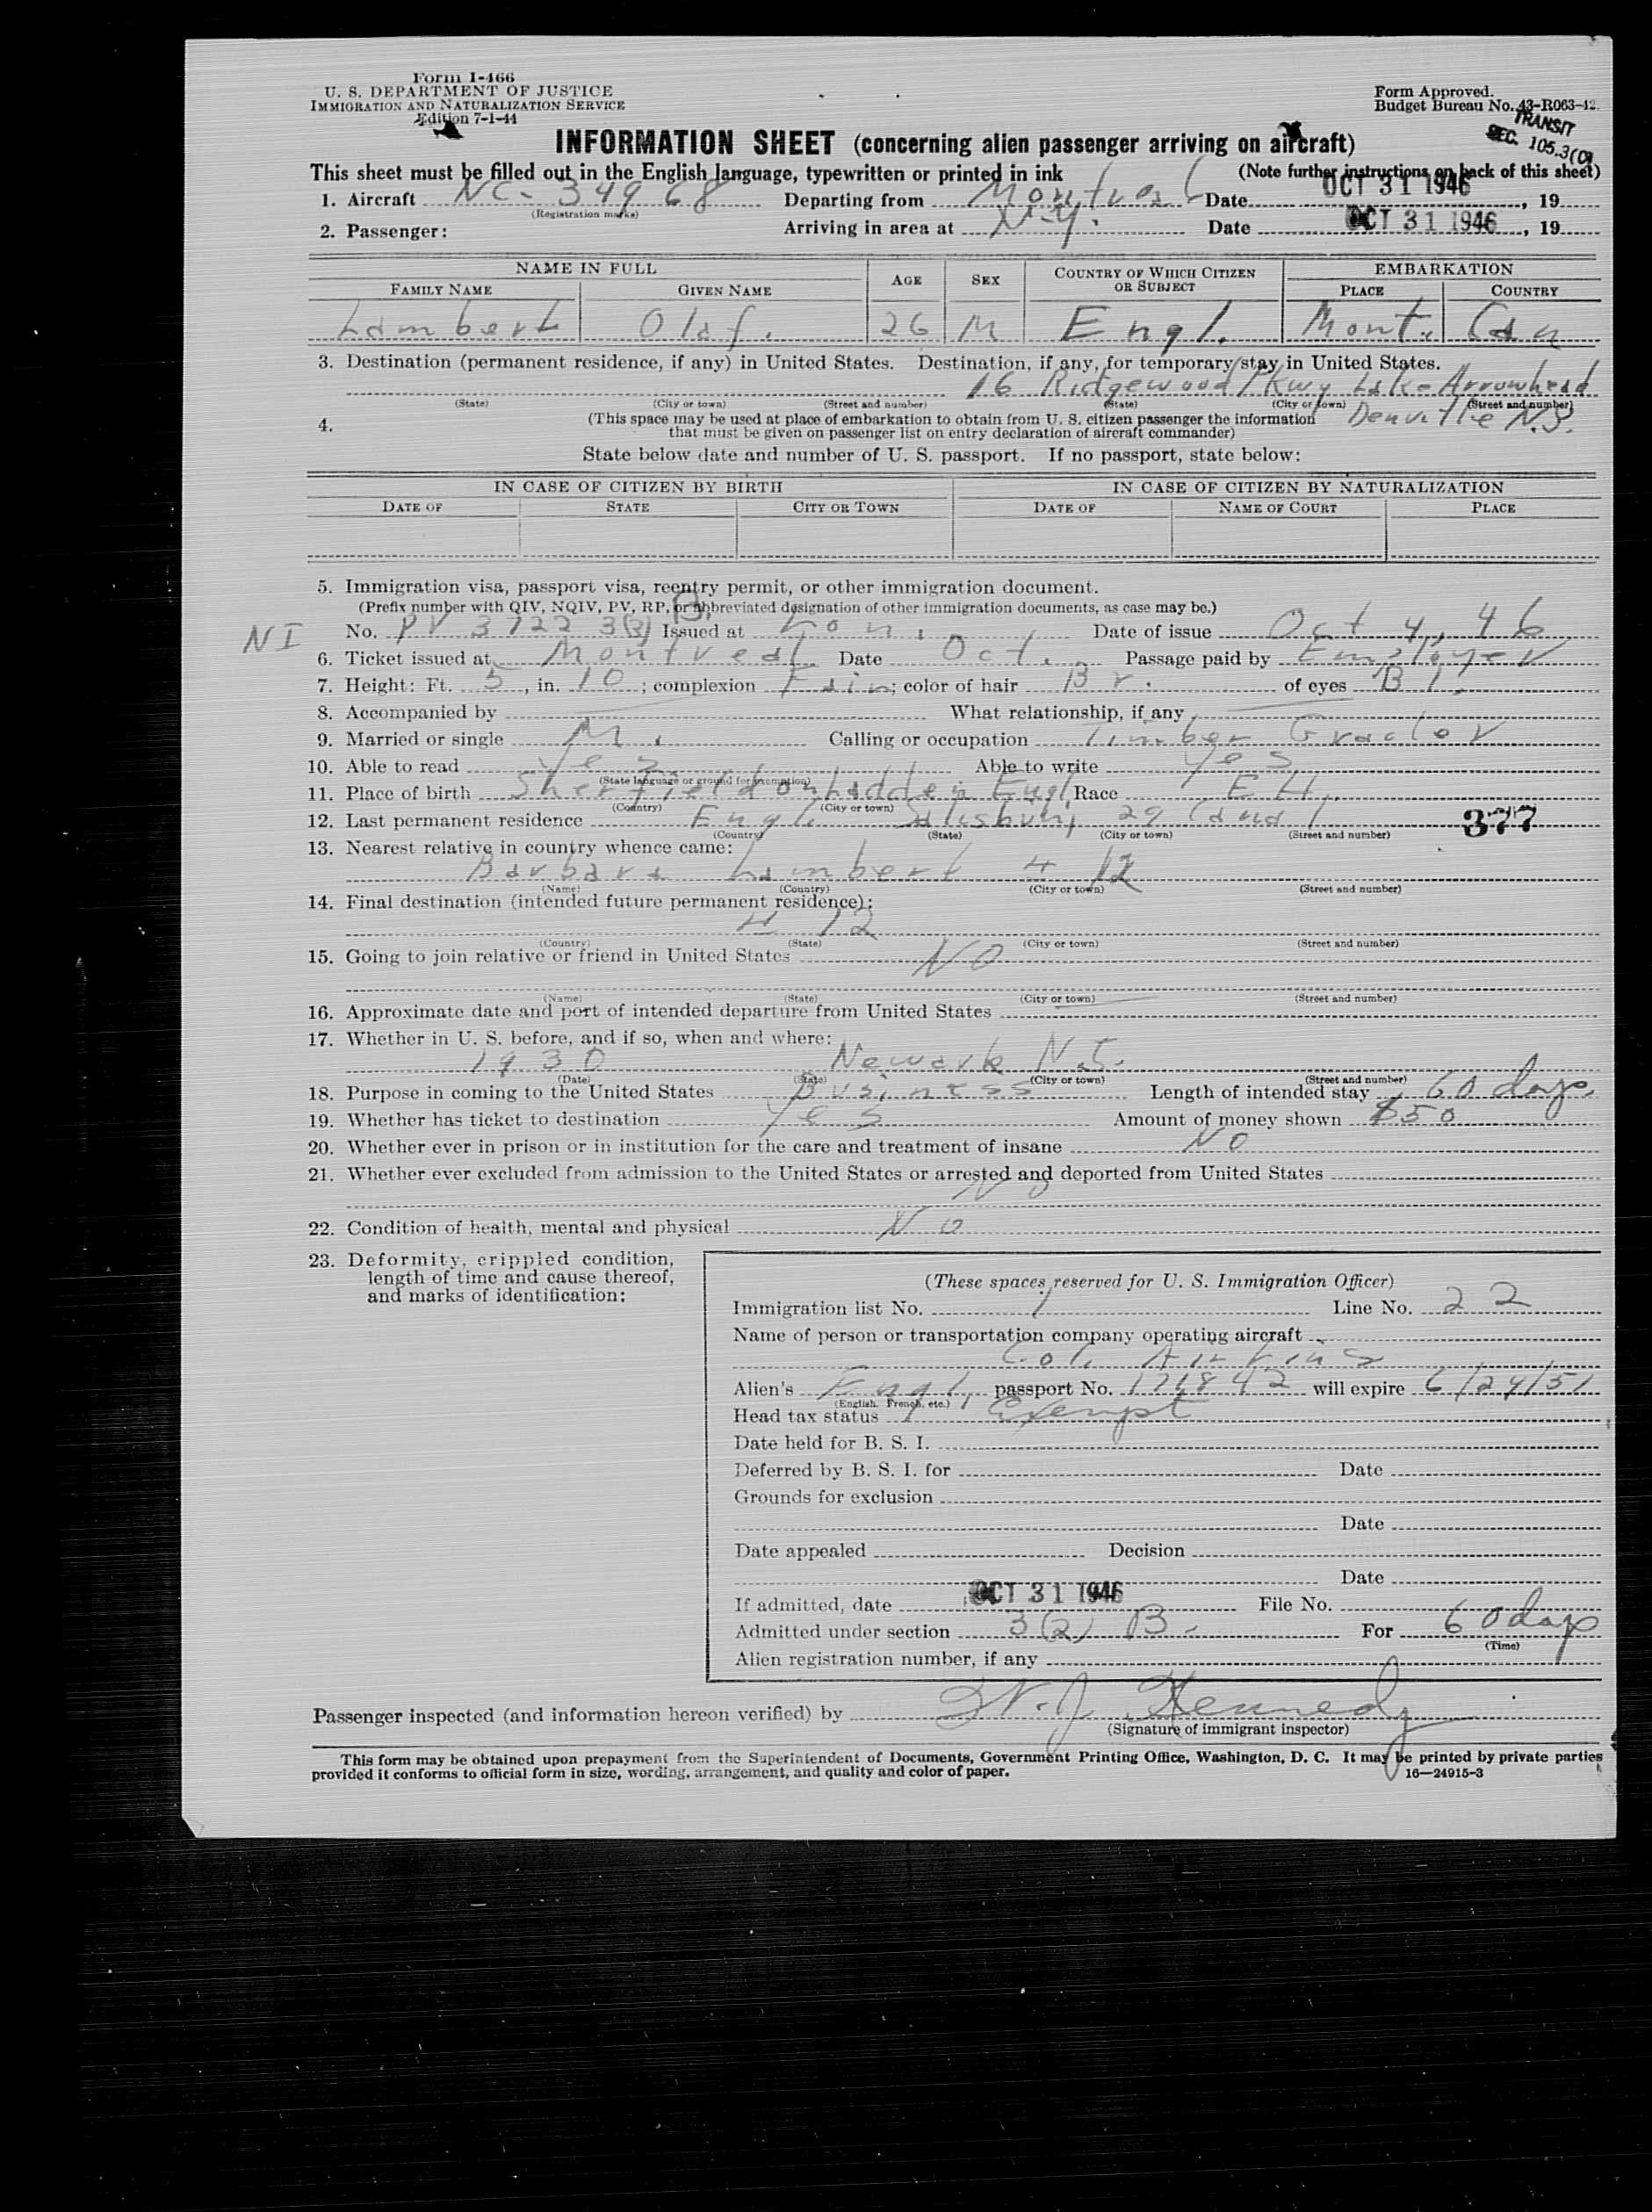 Form I-466
U. S. DEPARTMENT OF JUSTICE
IMMIGRATION AND NATURALIZATION SERVICE
Edition 7-1-44
Form Approved.
Budget Bureau No. 43-R063-42.
TRANSIT
SEC. 105.3(C)
INFORMATION SHEET (concerning alien passenger arriving on aircraft)
This sheet must be filled out in the English language, typewritten or printed in ink (Note further instructions on back of this sheet)
1. Aircraft NC-34968 Departing from Montreal Date OCT 31 1946, 19
(Registration marks)
2. Passenger: Arriving in area at N.Y. Date OCT 31 1946, 19
NAME IN FULL AGE SEX COUNTRY OF WHICH CITIZEN OR SUBJECT EMBARKATION
FAMILY NAME GIVEN NAME PLACE COUNTRY
Lambert Olaf. 26 M Engl. Mont. Can
3. Destination (permanent residence, if any) in United States. Destination, if any, for temporary stay in United States.
16 Ridgewood Pkwy Lake Arrowhead
(State) (City or town) (Street and number) (State) (City or town) (Street and number)
Denville N.J.
4. (This space may be used at place of embarkation to obtain from U. S. citizen passenger the information
that must be given on passenger list on entry declaration of aircraft commander)
State below date and number of U. S. passport. If no passport, state below:
IN CASE OF CITIZEN BY BIRTH IN CASE OF CITIZEN BY NATURALIZATION
DATE OF STATE CITY OR TOWN DATE OF NAME OF COURT PLACE
5. Immigration visa, passport visa, reentry permit, or other immigration document.
(Prefix number with QIV, NQIV, PV, RP, or abbreviated designation of other immigration documents, as case may be.)
B.
NI No. PV 3722 3(2) Issued at Lon. Date of issue Oct 4, 46
6. Ticket issued at Montreal Date Oct. Passage paid by Employer
7. Height: Ft. 5, in. 10; complexion Fair; color of hair Br. of eyes Bl.
8. Accompanied by What relationship, if any
9. Married or single M. Calling or occupation Timber Grader
10. Able to read Yes Able to write Yes
(State language or ground for exemption)
11. Place of birth Engl Race
(Country) (City or town)
12. Last permanent residence Engl. 29 Canal 377
(Country) (State) (City or town) (Street and number)
13. Nearest relative in country whence came:
Barbara Lambert # 12
(Name) (Country) (City or town) (Street and number)
14. Final destination (intended future permanent residence):
# 12
(Country) (State) (City or town) (Street and number)
15. Going to join relative or friend in United States NO
(Name) (State) (City or town) (Street and number)
16. Approximate date and port of intended departure from United States
17. Whether in U. S. before, and if so, when and where:
1930 Newark N.J.
(Date) (State) (City or town) (Street and number)
18. Purpose in coming to the United States Business Length of intended stay 60 days.
19. Whether has ticket to destination Yes Amount of money shown $50
20. Whether ever in prison or in institution for the care and treatment of insane NO
21. Whether ever excluded from admission to the United States or arrested and deported from United States
No
22. Condition of health, mental and physical No
23. Deformity, crippled condition,
length of time and cause thereof,
and marks of identification:
(These spaces reserved for U. S. Immigration Officer)
Immigration list No. 1 Line No. 22
Name of person or transportation company operating aircraft
Col. Airlines
Alien's Engl. passport No. 171842 will expire 6/24/51
(English, French, etc.)
Head tax status Exempt
Date held for B. S. I.
Deferred by B. S. I. for Date
Grounds for exclusion
Date
Date appealed Decision
Date
If admitted, date OCT 31 1946 File No.
Admitted under section 3(2) B. For 60 days
(Time)
Alien registration number, if any
Passenger inspected (and information hereon verified) by W. J. Kennedy
(Signature of immigrant inspector)
This form may be obtained upon prepayment from the Superintendent of Documents, Government Printing Office, Washington, D. C. It may be printed by private parties
provided it conforms to official form in size, wording, arrangement, and quality and color of paper. 16—24915-3